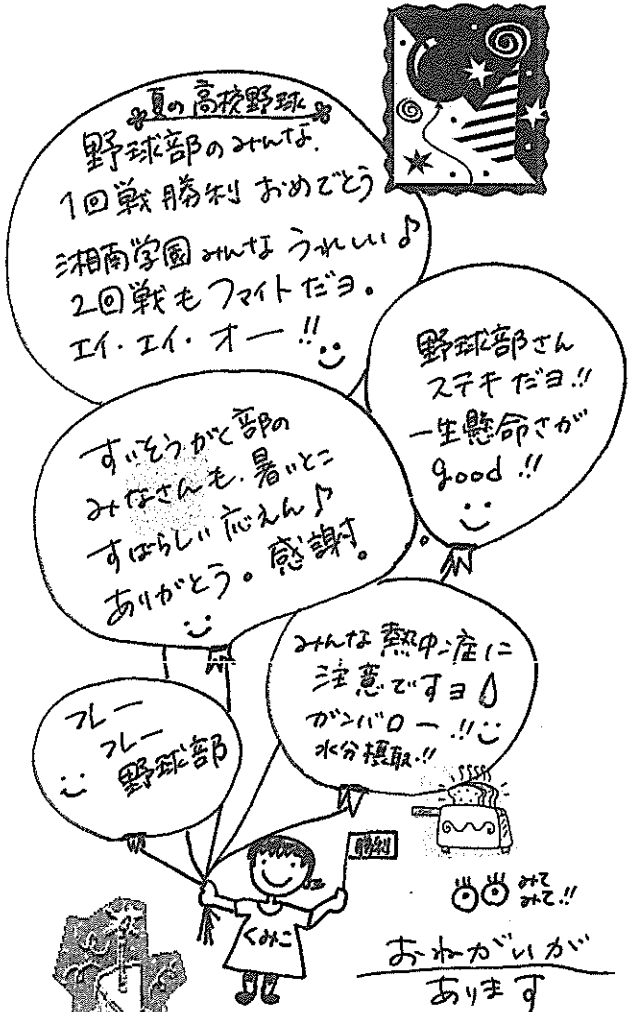 夏の高校野球
野球部のみんな、
1回戦勝利 おめでとう
湘南学園みんな うれしい♪
2回戦も ファイト だヨ。
エイ・エイ・オー!!
野球部さん
ステキ だヨ!!
一生懸命さが
good!!
すいそうがく部の
みなさんも、暑いとこ
すばらしい 応えん♪
ありがとう。感謝。
みんな 熱中症に
注意ですヨ
ガンバロー!!
水分摂取!!
フレー
フレー
野球部
勝利
くみこ
みて
みて!!
おねがいが
あります